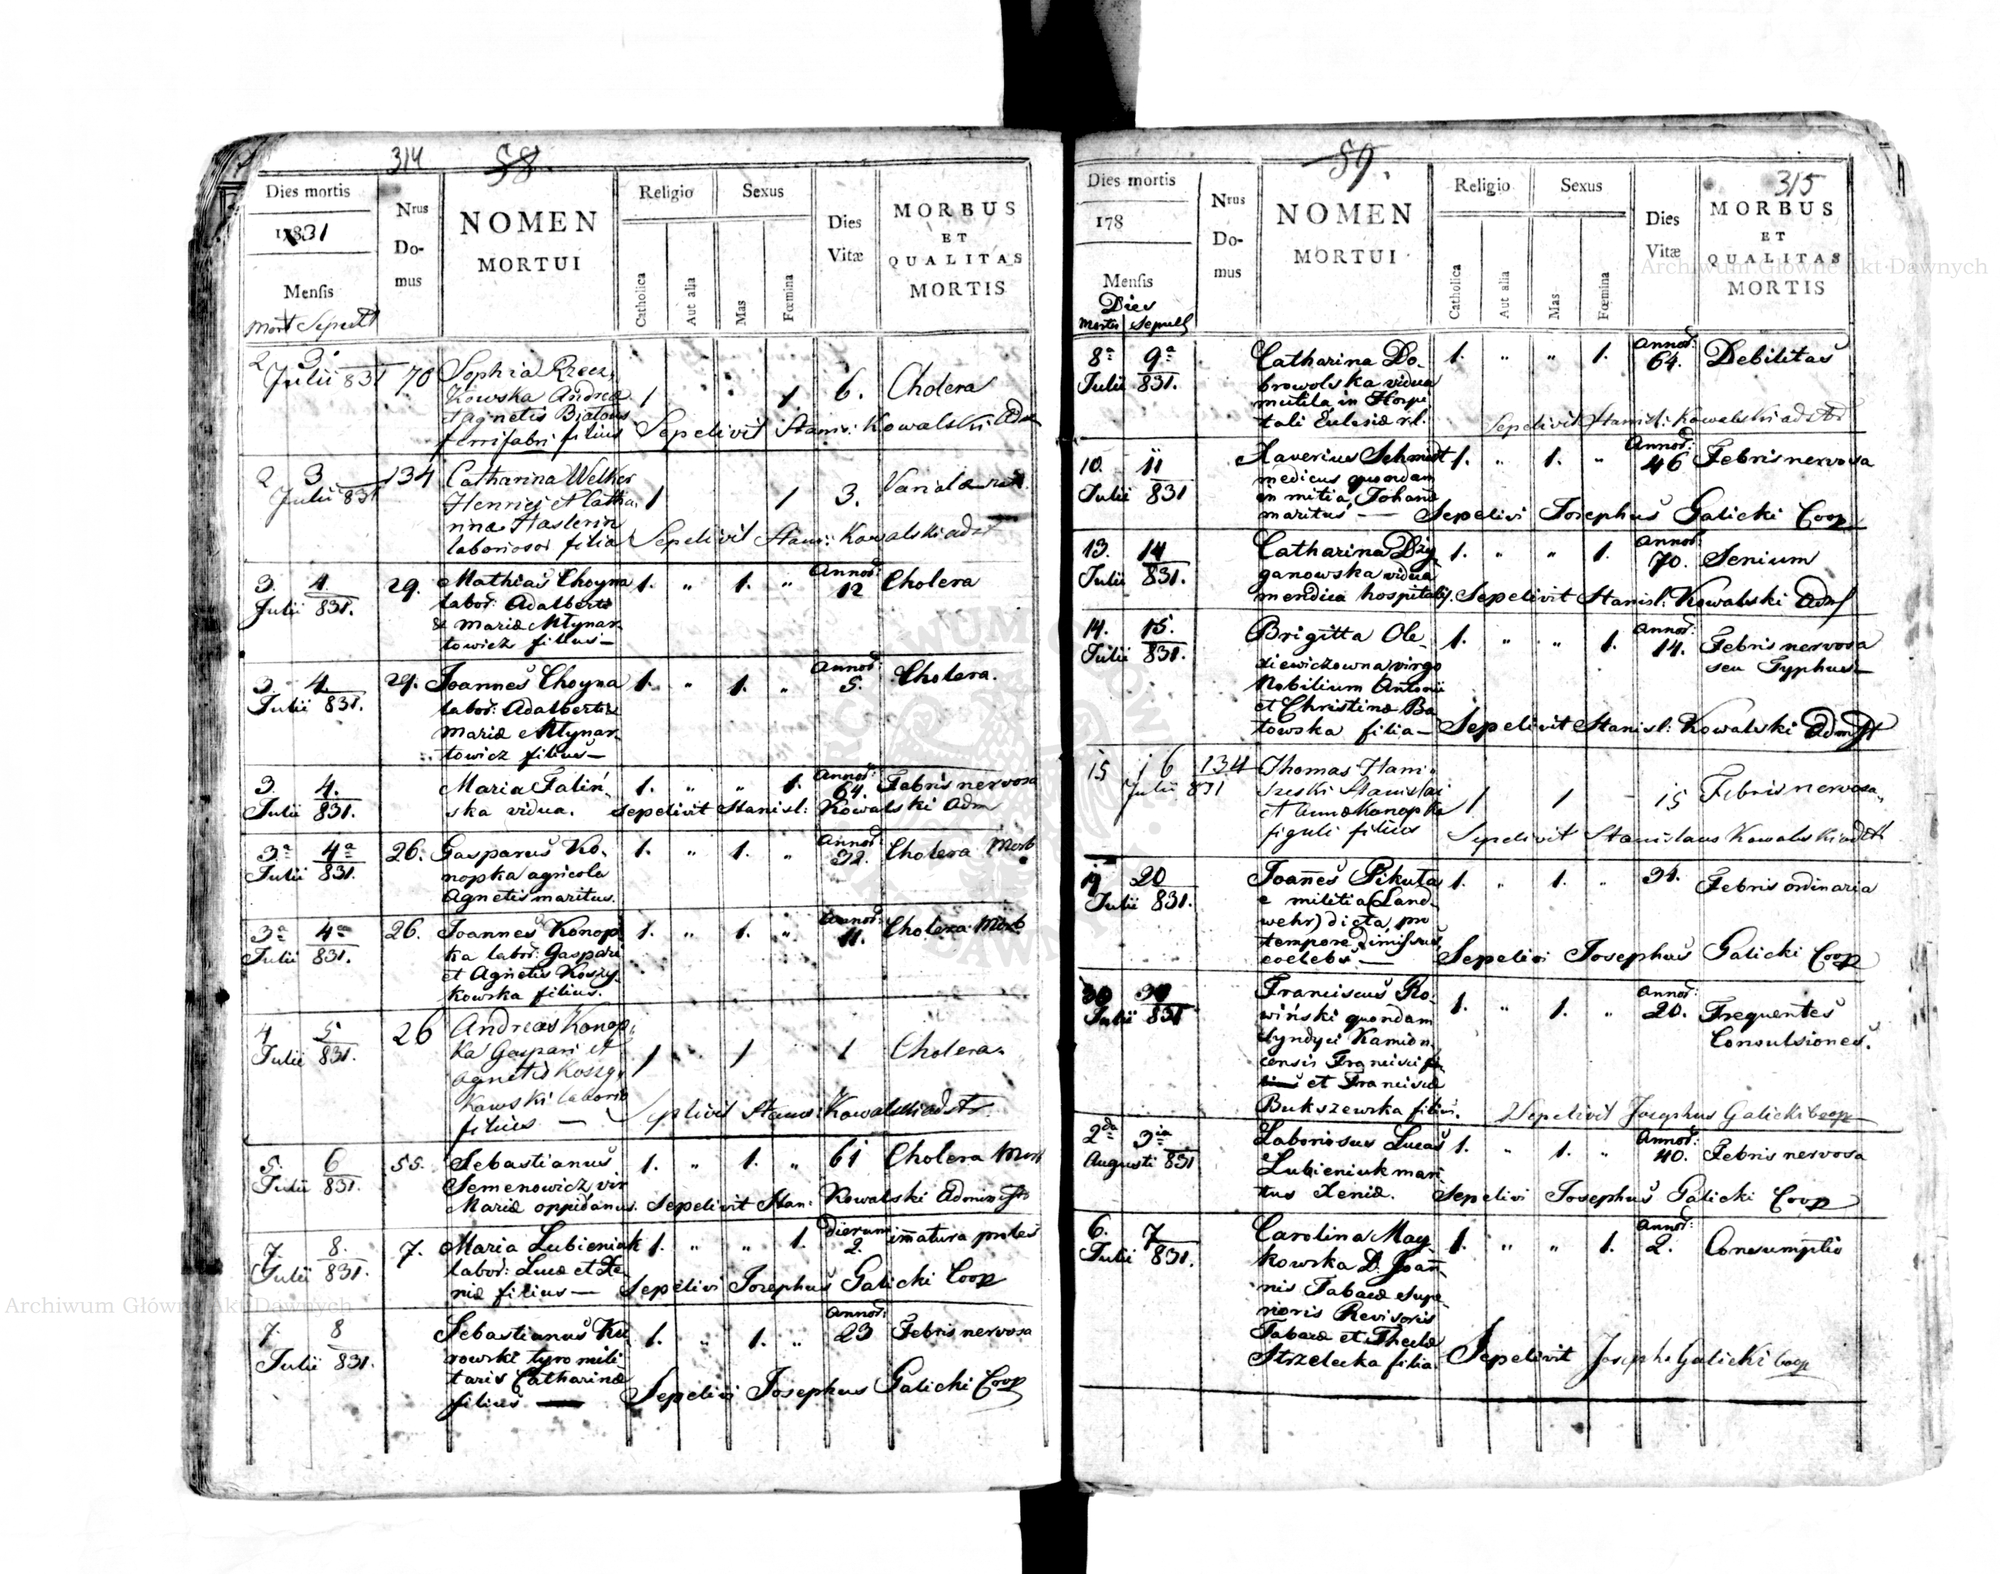 314
58.
Dies mortis
1831
Mensis
Mort Sepult
Nrus
Do-
mus
NOMEN
MORTUI
Religio
Catholica
Aut alia
Sexus
Mas
Fœmina
Dies
Vitæ
MORBUS
ET
QUALITAS
MORTIS
2 3
Julii 831 70 Sophia
kowska Andreæ 1 1 6. Cholera
et Agnetis
ferrifabri filius Sepelivit Stanis: Kowalski Adm
2 3 134 Catharina Welker
Julii 831 Henrici et Catha- 1 1 3.
rinæ Haslerin
filia Sepelivit Stanis: Kowalski
3. 4. 29. Mathias Choyna 1. „ 1. „ Annor: 12 Cholera
Julii 831. labor: Adalberti
& Mariæ Młynar-
towicz filius—
3. 4. 29. Joannes Choyna 1. „ 1. „ Annor: 5. Cholera.
Julii 831. labor: Adalberti &
Mariæ Młynar-
towicz filius—
3. 4. Maria Faliń- 1. „ „ 1. Annor: 64. Febris nervosa
Julii 831. ska vidua. Sepelivit Stanisl: Kowalski Adm
3a 4a 26. Gasparus Ko- 1. „ 1. „ Annor: 32. Cholera Morb
Julii 831. nopka agricola
Agnetis maritus.
3a 4a 26. Joannes Konop- 1. „ 1. „ Annor: 11. Cholera Morb
Julii 831. ka labor: Gaspari
et Agnetis Koszy-
kowska filius.
4 5 26 Andreas Konop-
Julii 831. ka Gaspari et 1 1 1 Cholera.
Agnetis Koszy-
kowski
filius — Sepelivit Stanis: Kowalski
5. 6 55. Sebastianus 1. „ 1. „ 61 Cholera Morb
Julii 831. Semenowicz vir
Mariæ oppidanus. Sepelivit Stan: Kowalski
7. 8. 7. Maria Lubieniak 1. „ „ 1. dierum 2. immatura proles
Julii 831. labor: Lucæ et Xe-
niæ filius — Sepelivi Josephus Galicki Coop
7. 8 Sebastianus Ku- 1. „ 1. „ Annor: 23 Febris nervosa
Julii 831. rowski tyro mili-
taris Catharinæ
filius — Sepelivi Josephus Galicki Coop
59.
315
Dies mortis
178
Mensis
Dies
Mortis Sepult
Nrus
Do-
mus
NOMEN
MORTUI
Religio
Catholica
Aut alia
Sexus
Mas
Fœmina
Dies
Vitæ
MORBUS
ET
QUALITAS
MORTIS
8a 9a Catharina Do- 1. „ „ 1. Annor: 64. Debilitas
Julii 831. browolska vidua
mutila in Hospi-
tali Eclesiæ r.l. Sepelivit Stanisl: Kowalski
10. 11 Xaverius Schmidt 1. „ 1. „ Annor: 46 Febris nervosa
Julii 831 medicus quondam
in mitia, Johanæ
maritus — Sepelivi Josephus Galicki Coop
13. 14 Catharina Dzy- 1. „ „ 1. Annor: 70. Senium
Julii 831. ganowska vidua
mendica hospitalis. Sepelivit Stanisl: Kowalski Adm
14. 15. Brigitta Ole- 1. „ „ 1. Annor: 14. Febris nervosa
Julii 831. xiewiczowna virgo seu Typhus—
Nobilium Antonii
et Christinæ Ba-
towska filia— Sepelivit Stanisl: Kowalski
15 16 134 Thomas
Julii 831 Stanislai 1 1 15 Febris nervosa
et Annæ Konopka
figuli filius Sepelivit Stanislaus Kowalski
19 20 Joannes Pikuta 1. „ 1. „ 34. Febris ordinaria
Julii 831. e militia (Land-
wehr) dicta, pro
tempore dimissus
coelebs. — Sepelivi Josephus Galicki Coop
30 30 Franciscus Ro- 1. „ 1. „ Annor: 20. Frequentes
Julii 831 wiński quondam Convulsiones.
Syndyci Kamion-
censis Francisci
et Franciscæ
Bukszewska filius. Sepelivit Josephus Galicki Coop
2da 3ia Laboriosus Lucas 1. „ 1. „ Annor: 40. Febris nervosa
Augusti 831 Lubieniuk mari-
tus Xeniæ. Sepelivi Josephus Galicki Coop
6. 7 Carolina May- 1. „ „ 1. Annor: 2. Consumptio
Julii 831. kowska D. Joan-
nis Tabacæ Supe-
rioris Revisoris
Tabacæ et Theclæ
Strzelecka filia Sepelivit Joseph. Galicki Coop
Archiwum Główne Akt Dawnych
Archiwum Główne Akt Dawnych